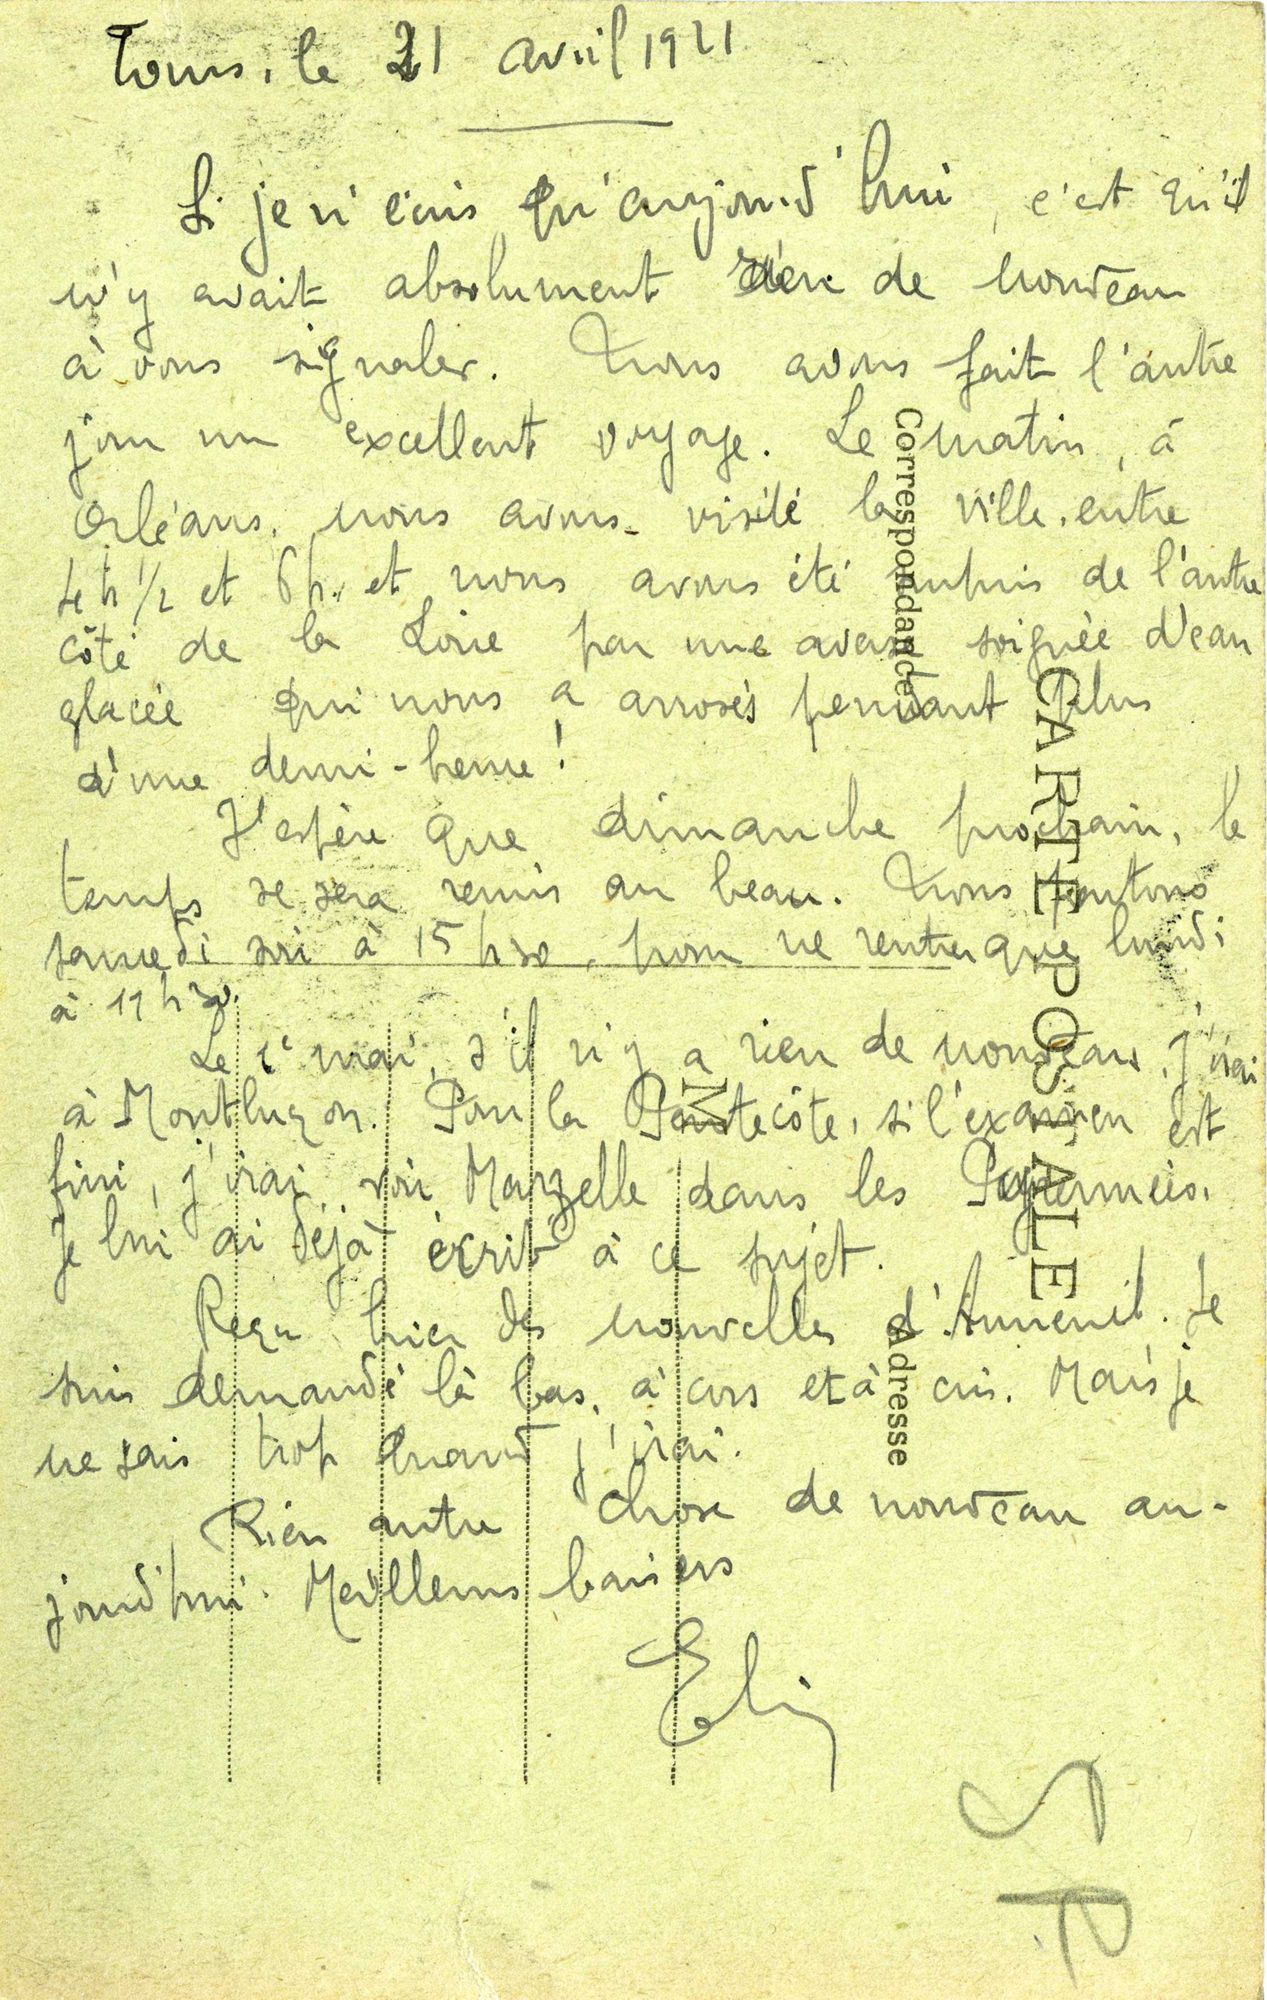 Tours, le 21 avril 1921
Si je n'écris qu'aujourd'hui, c'est qu'il
n'y avait absolument rien de nouveau
à vous signaler. Nous avons fait l'autre
jour un excellent voyage. Le matin, à
Orléans, nous avons visité la ville, entre
4h 1/2 et 6h. et nous avons été surpris de l'autre
côté de la Loire par une averse soignée d'eau
glacée qui nous a arrosés pendant plus
d'une demi-heure!
J'espère que dimanche prochain, le
temps se sera remis au beau. Nous partons
samedi soir à 15 h 30, pour ne rentrer que lundi
à 11 h 30.
Le 1er mai, s'il n'y a rien de nouveau, j'irai
à Montluçon. Pour la Pentecôte, si l'examen est
fini, j'irai voir Marzelle dans les Pyrénnées.
Je lui ai déjà écrit à ce sujet.
Reçu hier des nouvelles d'Auneuil. Je
suis demandé là bas, à cors et à cris. Mais je
ne sais trop quand j'irai.
Rien autre chose de nouveau au-
jourd'hui. Meilleurs baisers
CARTE POSTALE
Correspondance
Adresse
M